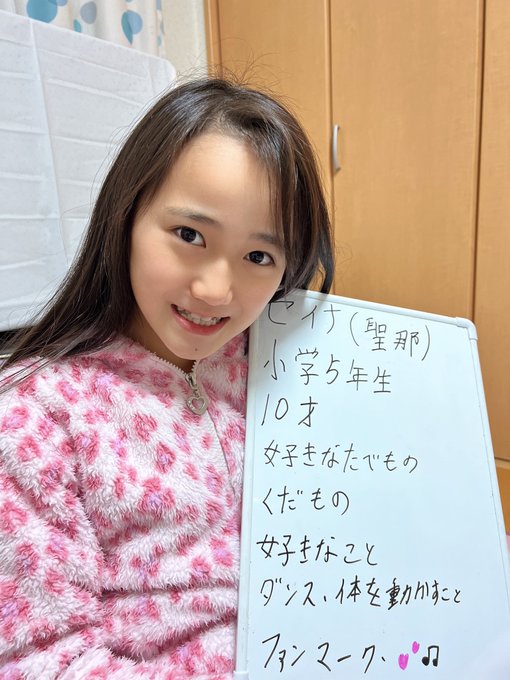 セイナ(聖那)
小学5年生
10才
好きなたべもの
くだもの
好きなこと
ダンス、体を動かすこと
ファンマーク、💕♫